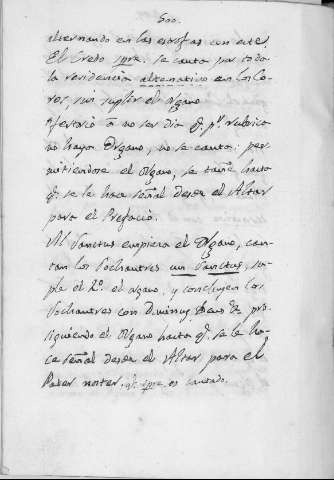 500.
alternando en las estrofas con este.
El Credo spre. se canta por toda
la residencia alternativo en los Co-
ros, sin suplir el organo
ofertorio a no ser dia q. pr. rubrica
no haya Organo, no se canta. per
mitiendose el Organo, se tañe hasta
q. se le hace señal desde el Altar
para el Prefacio.
Al Sanctus empieza el Organo, can-
tan los Sochantres un Sanctus, su-
ple el 2o. el organo. y concluyen los
Sochantres con Dominus Deus &a pro-
siguiendo el Organo hasta q. se le ha-
ce señal desde el Altar para el
Pater noster, spre. es cantado.